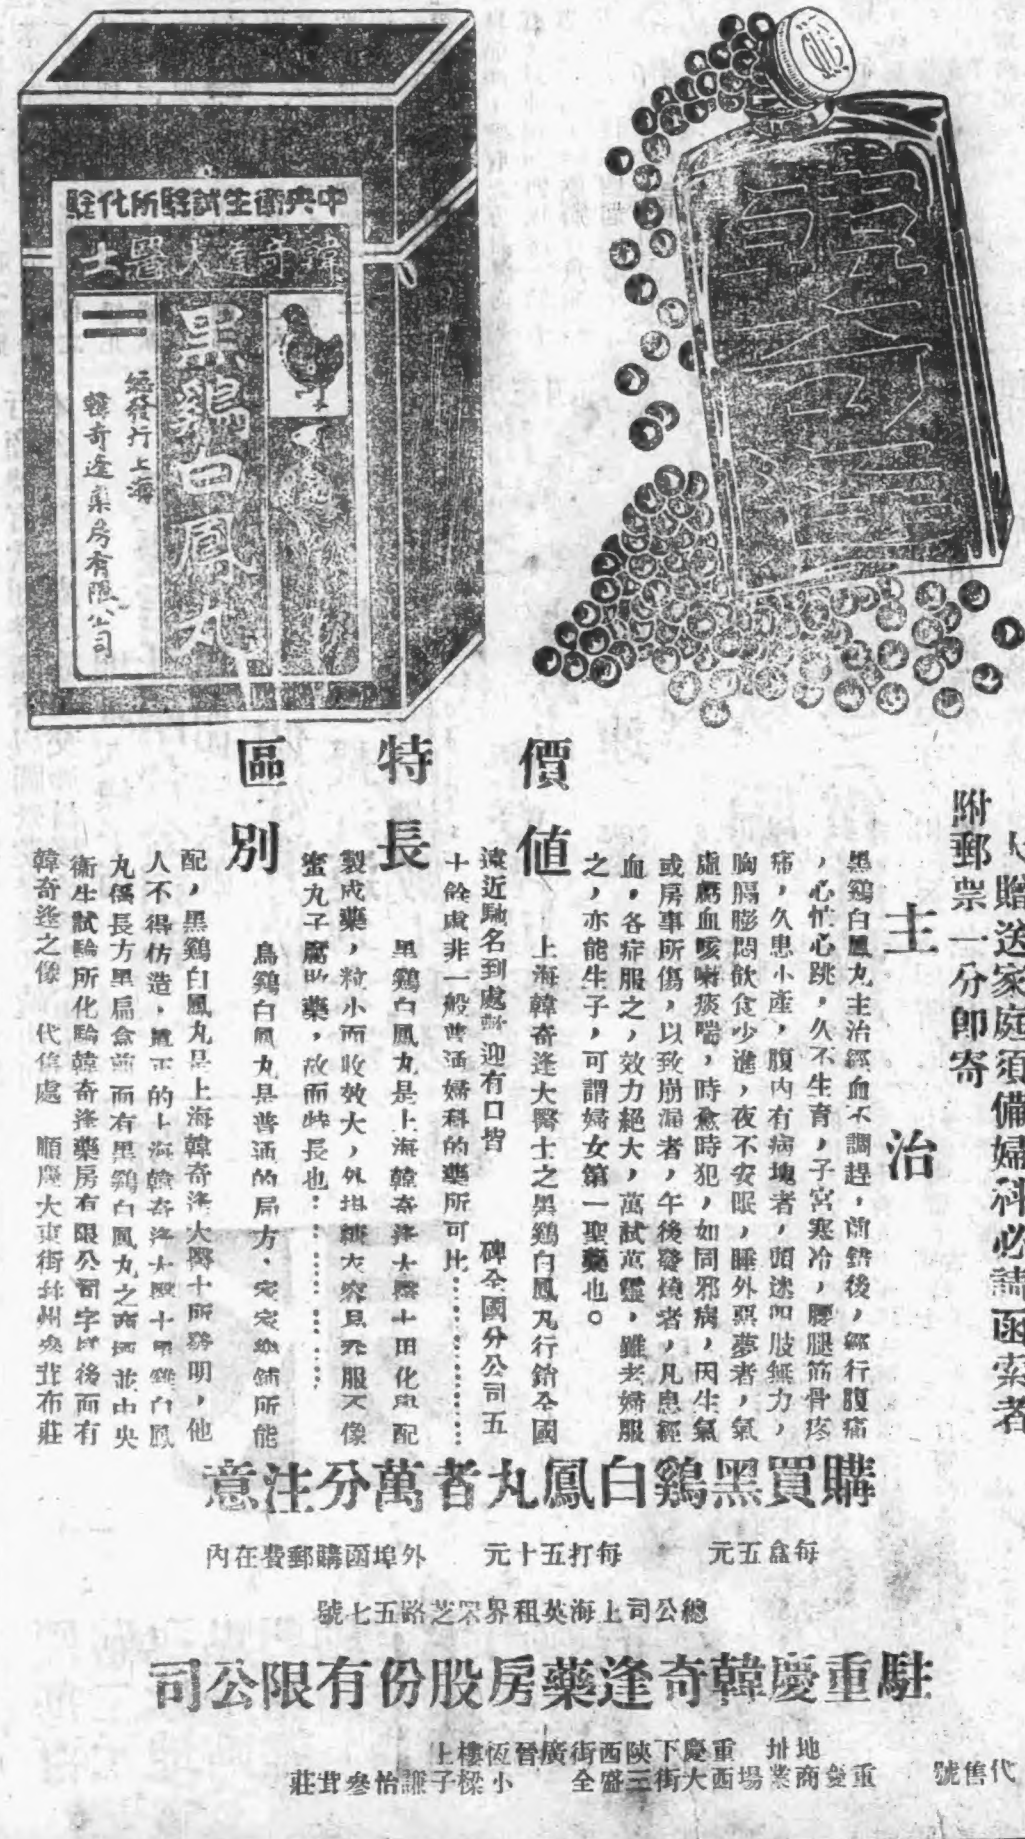 中央衛生試驗所化驗
韓奇逢大醫士
黑鷄白鳳丸
總發行上海
韓奇逢藥房有限公司
贈送家庭須備婦科必讀函索者
附郵票一分即寄
主治
黑鷄白鳳丸主治經血不調趕前錯後，經行腹痛
，心忙心跳，久不生育，子宮寒冷，腰腿筋骨疼
痛，久患小產，腹內有病塊者，頭迷四肢無力，
胸膈膨悶飲食少進，夜不安眠，睡外惡夢者，氣
虛虧血咳嗽痰喘，時愈時犯，如同邪病，因生氣
或房事所傷，以致崩漏者，午後發燒者，凡患經
血，各症服之，效力絕大，萬試萬靈，雖老婦服
之，亦能生子，可謂婦女第一聖藥也。
價值
上海韓奇逢大醫士之黑鷄白鳳丸行銷全國
遠近馳名到處歡迎有口皆碑全國分公司五
十餘處非一般普通婦科的藥所可比…………
特長
黑鷄白鳳丸是上海韓奇逢大醫士用化學配
製成藥，粒小而收效大，外掛糖衣容易吞服不像
蜜丸子腐敗藥，故而特長也…………
區別
烏鷄白鳳丸是普通的局方，家家藥鋪所能
配，黑鷄白鳳丸是上海韓奇逢大醫士所發明，他
人不得仿造，真正的上海韓奇逢大醫士黑鷄白鳳
丸係長方黑扁盒前面有黑鷄白鳳丸之商標並中央
衛生試驗所化驗韓奇逢藥房有限公司字樣後面有
韓奇逢之像　代售處　順慶大東街　州　布莊
購買黑鷄白鳳丸者萬分注意
每盒五元　每打五十元　外埠函購郵費在內
總公司上海英租界　芝路五七號
駐重慶韓奇逢藥房股份有限公司
地址　重慶下陝西街廣晉恆樓上
代售號　重慶商業場西大街三盛全　小樑子謙怡參茸莊